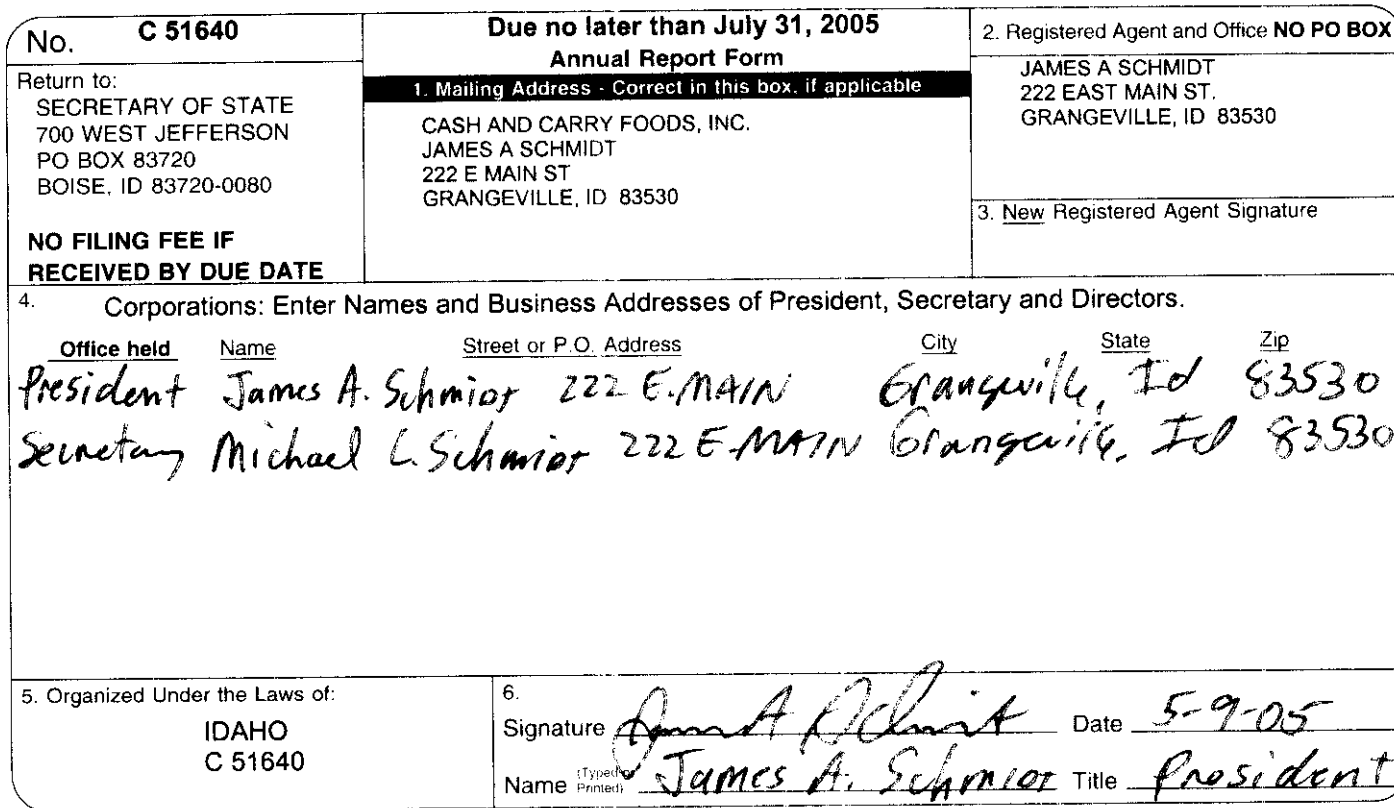 No. C 51640
Return to:
SECRETARY OF STATE
700 WEST JEFFERSON
PO BOX 83720
BOISE, ID 83720-0080
NO FILING FEE IF
RECEIVED BY DUE DATE
Due no later than July 31, 2005
Annual Report Form
1. Mailing Address - Correct in this box, if applicable
CASH AND CARRY FOODS, INC.
JAMES A SCHMIDT
222 E MAIN ST
GRANGEVILLE, ID 83530
2. Registered Agent and Office NO PO BOX
JAMES A SCHMIDT
222 EAST MAIN ST.
GRANGEVILLE, ID 83530
3. New Registered Agent Signature
4. Corporations: Enter Names and Business Addresses of President, Secretary and Directors.
Office held Name Street or P.O. Address City State Zip
President James A. Schmidt 222 E. MAIN Grangeville, Id 83530
Secretary Michael L. Schmidt 222 E. MAIN Grangeville, Id 83530
5. Organized Under the Laws of:
IDAHO
C 51640
6.
Signature James A Schmidt Date 5-9-05
Name (Typed or Printed) James A. Schmidt Title President